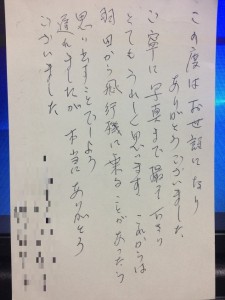 この度はお世話になり
ありがとうございました。
ご丁寧に写真まで撮って下さり
とてもうれしく思います これからは
羽田から飛行機に乗ることがあったら
思い出すことでしょう
遅れましたが 本当にありがとう
ございました